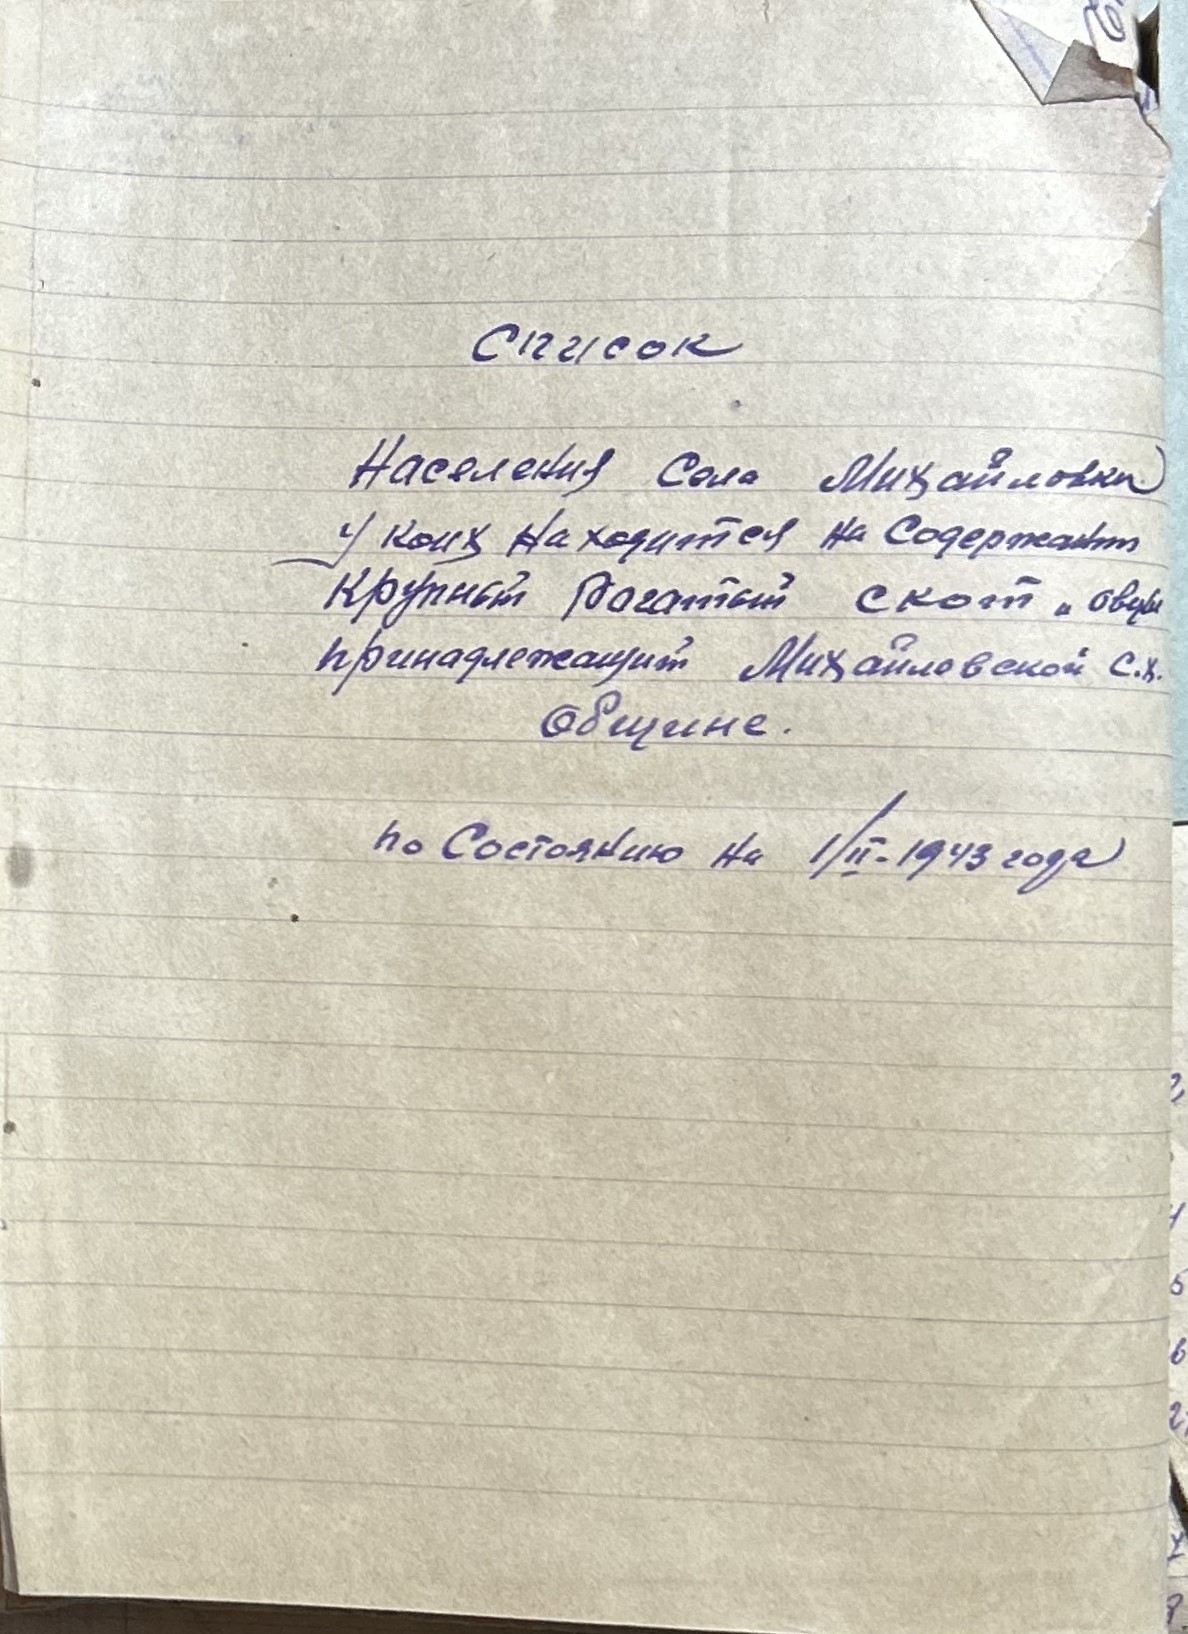 Список
Населения Села Михайловки
у коих находится на Содержании
Крупный Рогатый скот и овцы
принадлежащий Михайловской с.х.
Общине.
по Состоянию на 1/II-1943 года